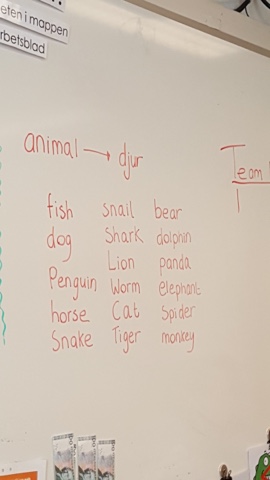 eten i mappen
rbetsblad
animal → djur
Team
1
fish snail bear
dog Shark dolphin
Lion panda
Penguin Worm elephant
horse Cat Spider
Snake Tiger monkey